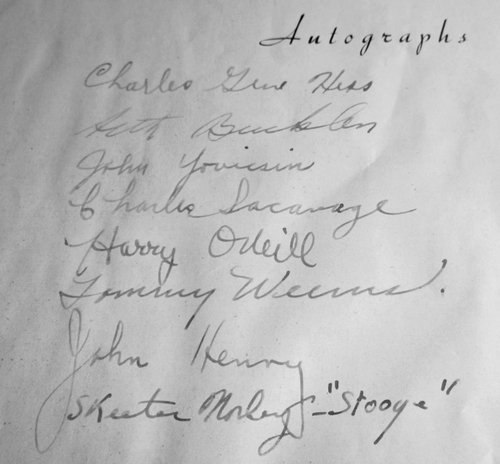 Autographs
Charles Gene Hess
Seth
John Yovicsin
Charles Sacavage
Harry O'Neill
Tommy Weems.
John Henry
Skeeter - "Stooge"